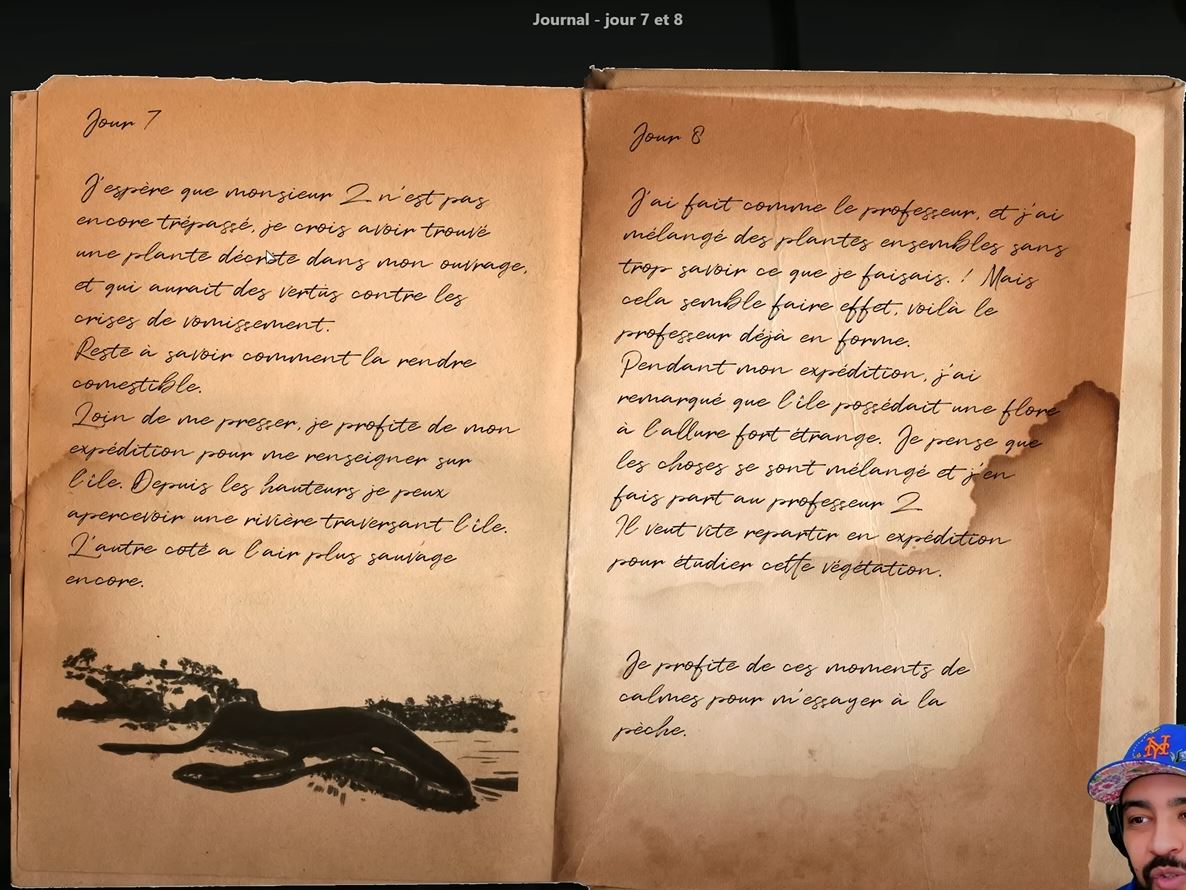 Journal - jour 7 et 8
Jour 7
J'espère que monsieur Z n'est pas
encore trépassé, je crois avoir trouvé
une plante décrote dans mon ouvrage,
et qui aurait des vertus contre les
crises de vomissement.
Reste à savoir comment la rendre
comestible.
Loin de me presser, je profite de mon
expédition pour me renseigner sur
l'île. Depuis les hauteurs je peux
apercevoir une rivière traversant l'île.
L'autre coté a l'air plus sauvage
encore.
Jour 8
J'ai fait comme le professeur, et j'ai
mélangé des plantes ensembles sans
trop savoir ce que je faisais. ! Mais
cela semble faire effet, voilà le
professeur déjà en forme.
Pendant mon expédition, j'ai
remarqué que l'île possédait une flore
à l'allure fort étrange. Je pense que
les choses se sont mélangé et j'en
fais part au professeur Z
Il veut vite repartir en expédition
pour étudier cette végétation.
Je profite de ces moments de
calmes pour m'essayer à la
pèche.